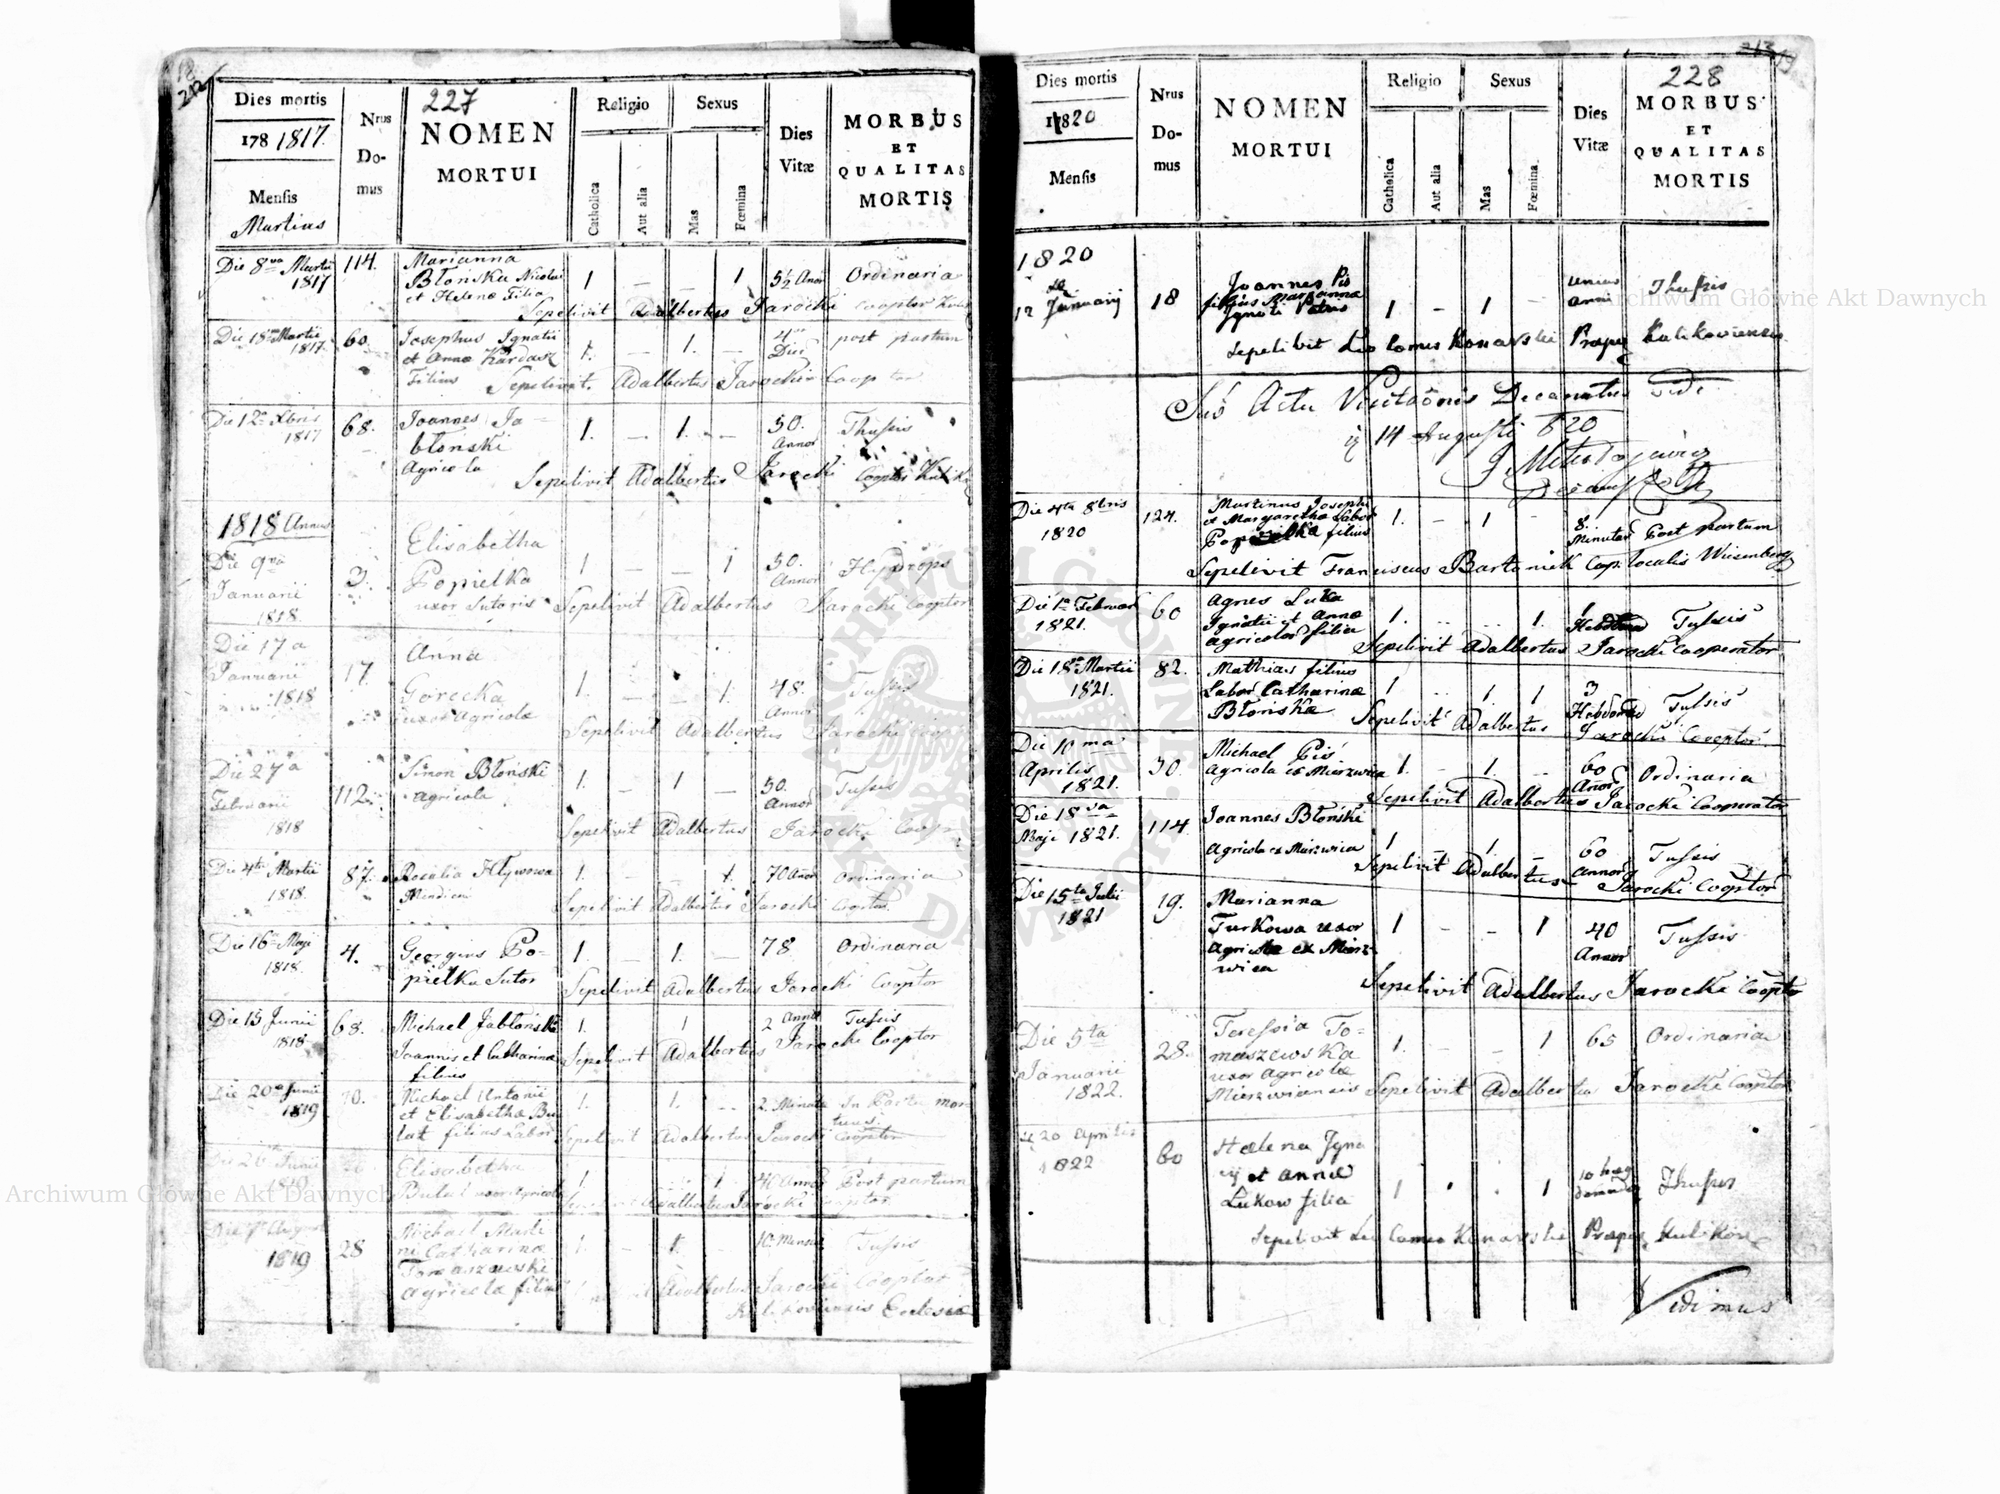 18.
227
Dies mortis
178 1817.
Mensis
Martius
Nrus Do-mus
NOMEN
MORTUI
Religio
Catholica
Aut alia
Sexus
Mas
Fœmina
Dies
Vitæ
MORBUS
ET
QUALITAS
MORTIS
Die 8va Martii 114. Marianna
1817 Błońska Nicolai 1 — — 1 5½ Anor Ordinaria
et Helenæ Filia
Sepelivit Adalbertus Jarocki Cooptor
Die 18 Martii 60. Josephus Ignatii 4 post partum
1817. et Annæ 1. — 1. — Dier
Filius Sepelivit. Adalbertus Jarocki Cooptor
Die 12a Xbris 68. Joannes Ja-
1817 błoński 1. — 1. — 50. Annor Thussis
Agricola
Sepelivit Adalbertus Jarocki Cooptor
1818 Annus
Die 9va 3. Elisabetha
Januarii Popielka 1 — — 1 50. Annor Hydrops
1818. uxor Sutoris Sepelivit Adalbertus Jarocki Cooptor
Die 17a Anna
Januarii 17 Gorecka 1. — — 1. 48. Annor Tussis
1818 uxor Agricolæ
Sepelivit Adalbertus Jarocki Coop
Die 27a Simon Błoński
Februarii 112. Agricola 1. — 1 — 50. Annor Tussis
1818
Sepelivit Adalbertus Jarocki Coop
Die 4ta Martii 87. Rosalia 1. — — 1. 70 Anor Ordinaria
1818.
Sepelivit Adalbertus Jarocki Cooptor
Die 16a Maji 4. Georgius Po- 1. — 1. — 78 Ordinaria
1818. pielka Sutor Sepelivit Adalbertus Jarocki Cooptor
Die 15 Junii 68. Michael Jabłoński 1. 1 2 Annor Tussis
1818 Joannis et Catharinæ Sepelivit Adalbertus Jarocki Cooptor
filius
Die 20a Junii 70. Michael Antonii 1. 1. — 2. Minuta In Partu mor-
1819 et Elisabethæ Bu- tuus.
lat filius Labor Sepelivit Adalbertus Jarocki Cooptor
Junii Elisabetha
1819 Bulat uxor Agricolæ 1 1 40 Annor Post partum
Adalbertus Jarocki Cooptor
August 28 Michael Marti-
1819 ni Catharinæ 1. — 1. 10. Mensis Tussis
Tomaszewski
agricolæ filius Adalbertus Jarocki Cooptor
Kulikoviensis Ecclesiæ
228
Dies mortis
1820
Mensis
Nrus Do-mus
NOMEN
MORTUI
Religio
Catholica
Aut alia
Sexus
Mas
Fœmina
Dies
Vitæ
MORBUS
ET
QUALITAS
MORTIS
1820
12 Januarij 18 Joannes Pis unius
filius Mariannæ anni Thussis
Ignatii 1 — 1 —
Sepelivit Leo Comes Konarski Præpos Kulikoviensis
Sub Actu Visitaõnis Decanatus Vidi
14 Augusti 820
Die 4ta 8bris 124. Martinus Josephi
1820 et Margarethæ Labor 1. — 1 — 8. Minuta Post partum
Popielka filius
Sepelivit Franciscus Bartonick Cap. localis Wiesenberg
Die 1a Februar 60 Agnes Luka
1821. Ignatii et Annæ 1. 1. 1 Tussis
agricolar filia Sepelivit Adalbertus Jarocki Cooperator
Die 18 Martii 82. Mathias filius
1821. Labor Catharinæ 1 1 1 3 Hebdomad Tussis
Błońska Sepelivit Adalbertus Jarocki Cooptor.
Die 10ma Michael Pis
Aprilis 30. Agricola ex Mierzwica 1. — 1. — 60 Anor Ordinaria
1821. Sepelivit Adalbertus Jarocki Cooperator
Die 18va 114 Joannes Błoński
Maji 1821. Agricola ex Mierzwica 1 — 1. — 60 Annor Tussis
Sepelivit Adalbertus Jarocki Cooptor
Die 15ta Julii 19. Marianna
1821 Turkowa uxor 1 — — 1 40 Annor Tussis
agricolæ ex Mierz-
wica
Sepelivit Adalbertus Jarocki Cooptor
Die 5ta 28. Teressia To-
Januarii maszewska 1. — — 1 65 Ordinaria
1822. uxor Agricolæ
Mierzwiensis Sepelivit Adalbertus Jarocki Cooptor
20 Aprilis 60 Halena Igna-
1822 tij et Annæ
Lukow filia 1 1 10 Thussis
Sepelivit Leo Comes Konarski Præpos Kulikov
Vidimus
Archiwum Główne Akt Dawnych
Archiwum Główne Akt Dawnych
ARCHIWUM GŁÓWNE AKT DAWNYCH